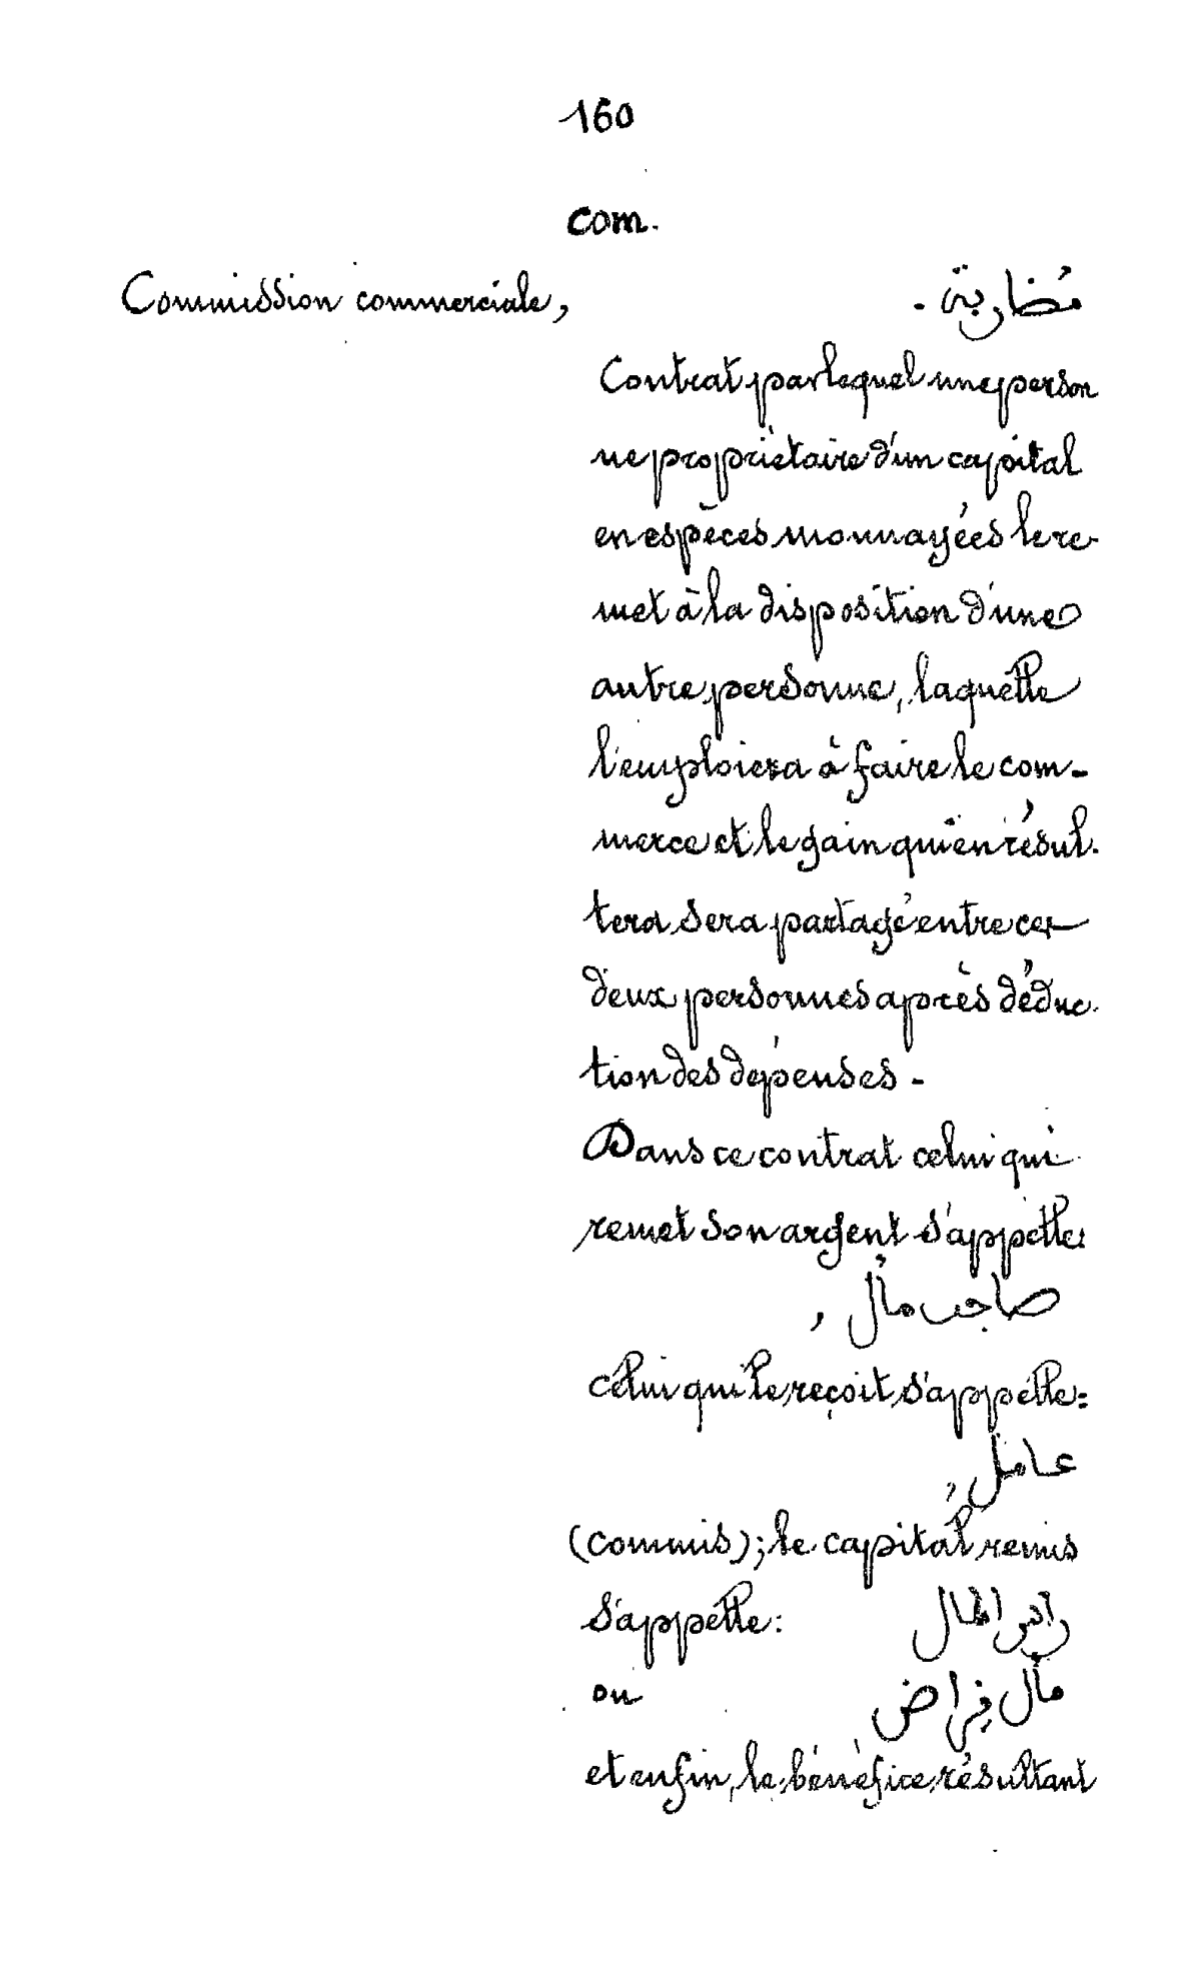 160
com.
Commission commerciale, مُضاربة .
Contrat par lequel une person
ne propriétaire d'un capital
en espèces monnayées le re-
met à la disposition d'une
autre personne, laquelle
l'emploiera à faire le com-
merce et le gain qui en résul-
tera sera partagé entre ces
deux personnes après déduc-
tion des dépenses -
Dans ce contrat celui qui
remet son argent s'appelle:
صاحب مال ,
celui qui le reçoit s'appelle:
عامل ,
(commis); le capital remis
s'appelle: رأس المال
ou مال قِراض
et enfin, le bénéfice résultant